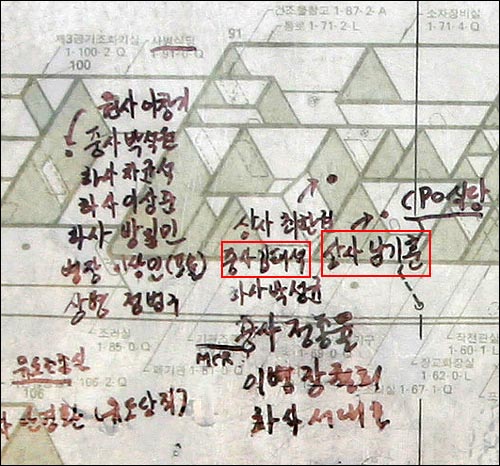 건조물창고 1-87-2-A
소자장비실
통로 1-71-2-L
1-71-4-Q
제3공기조화기실
사병식당
91
1-100-2-Q
1-91-0-Q
100
원사 이창기
중사 박석원
하사 차균석
하사 이상준
하사 방일민
병장 이상민
상병 정범구
CPO식당
상사 최한권
중사 김태석
상사 남기훈
하사 박성균
중사 정종율
MCR
이병 장철희
하사 서대호
조리실
1-85-0-Q
작전관실
1-60-1-L
장교화장실
1-62-0-L
1-67-1-Q
유도조종실
106
106-2-Q
폐기관
1-81-0-Q
(유도당직)